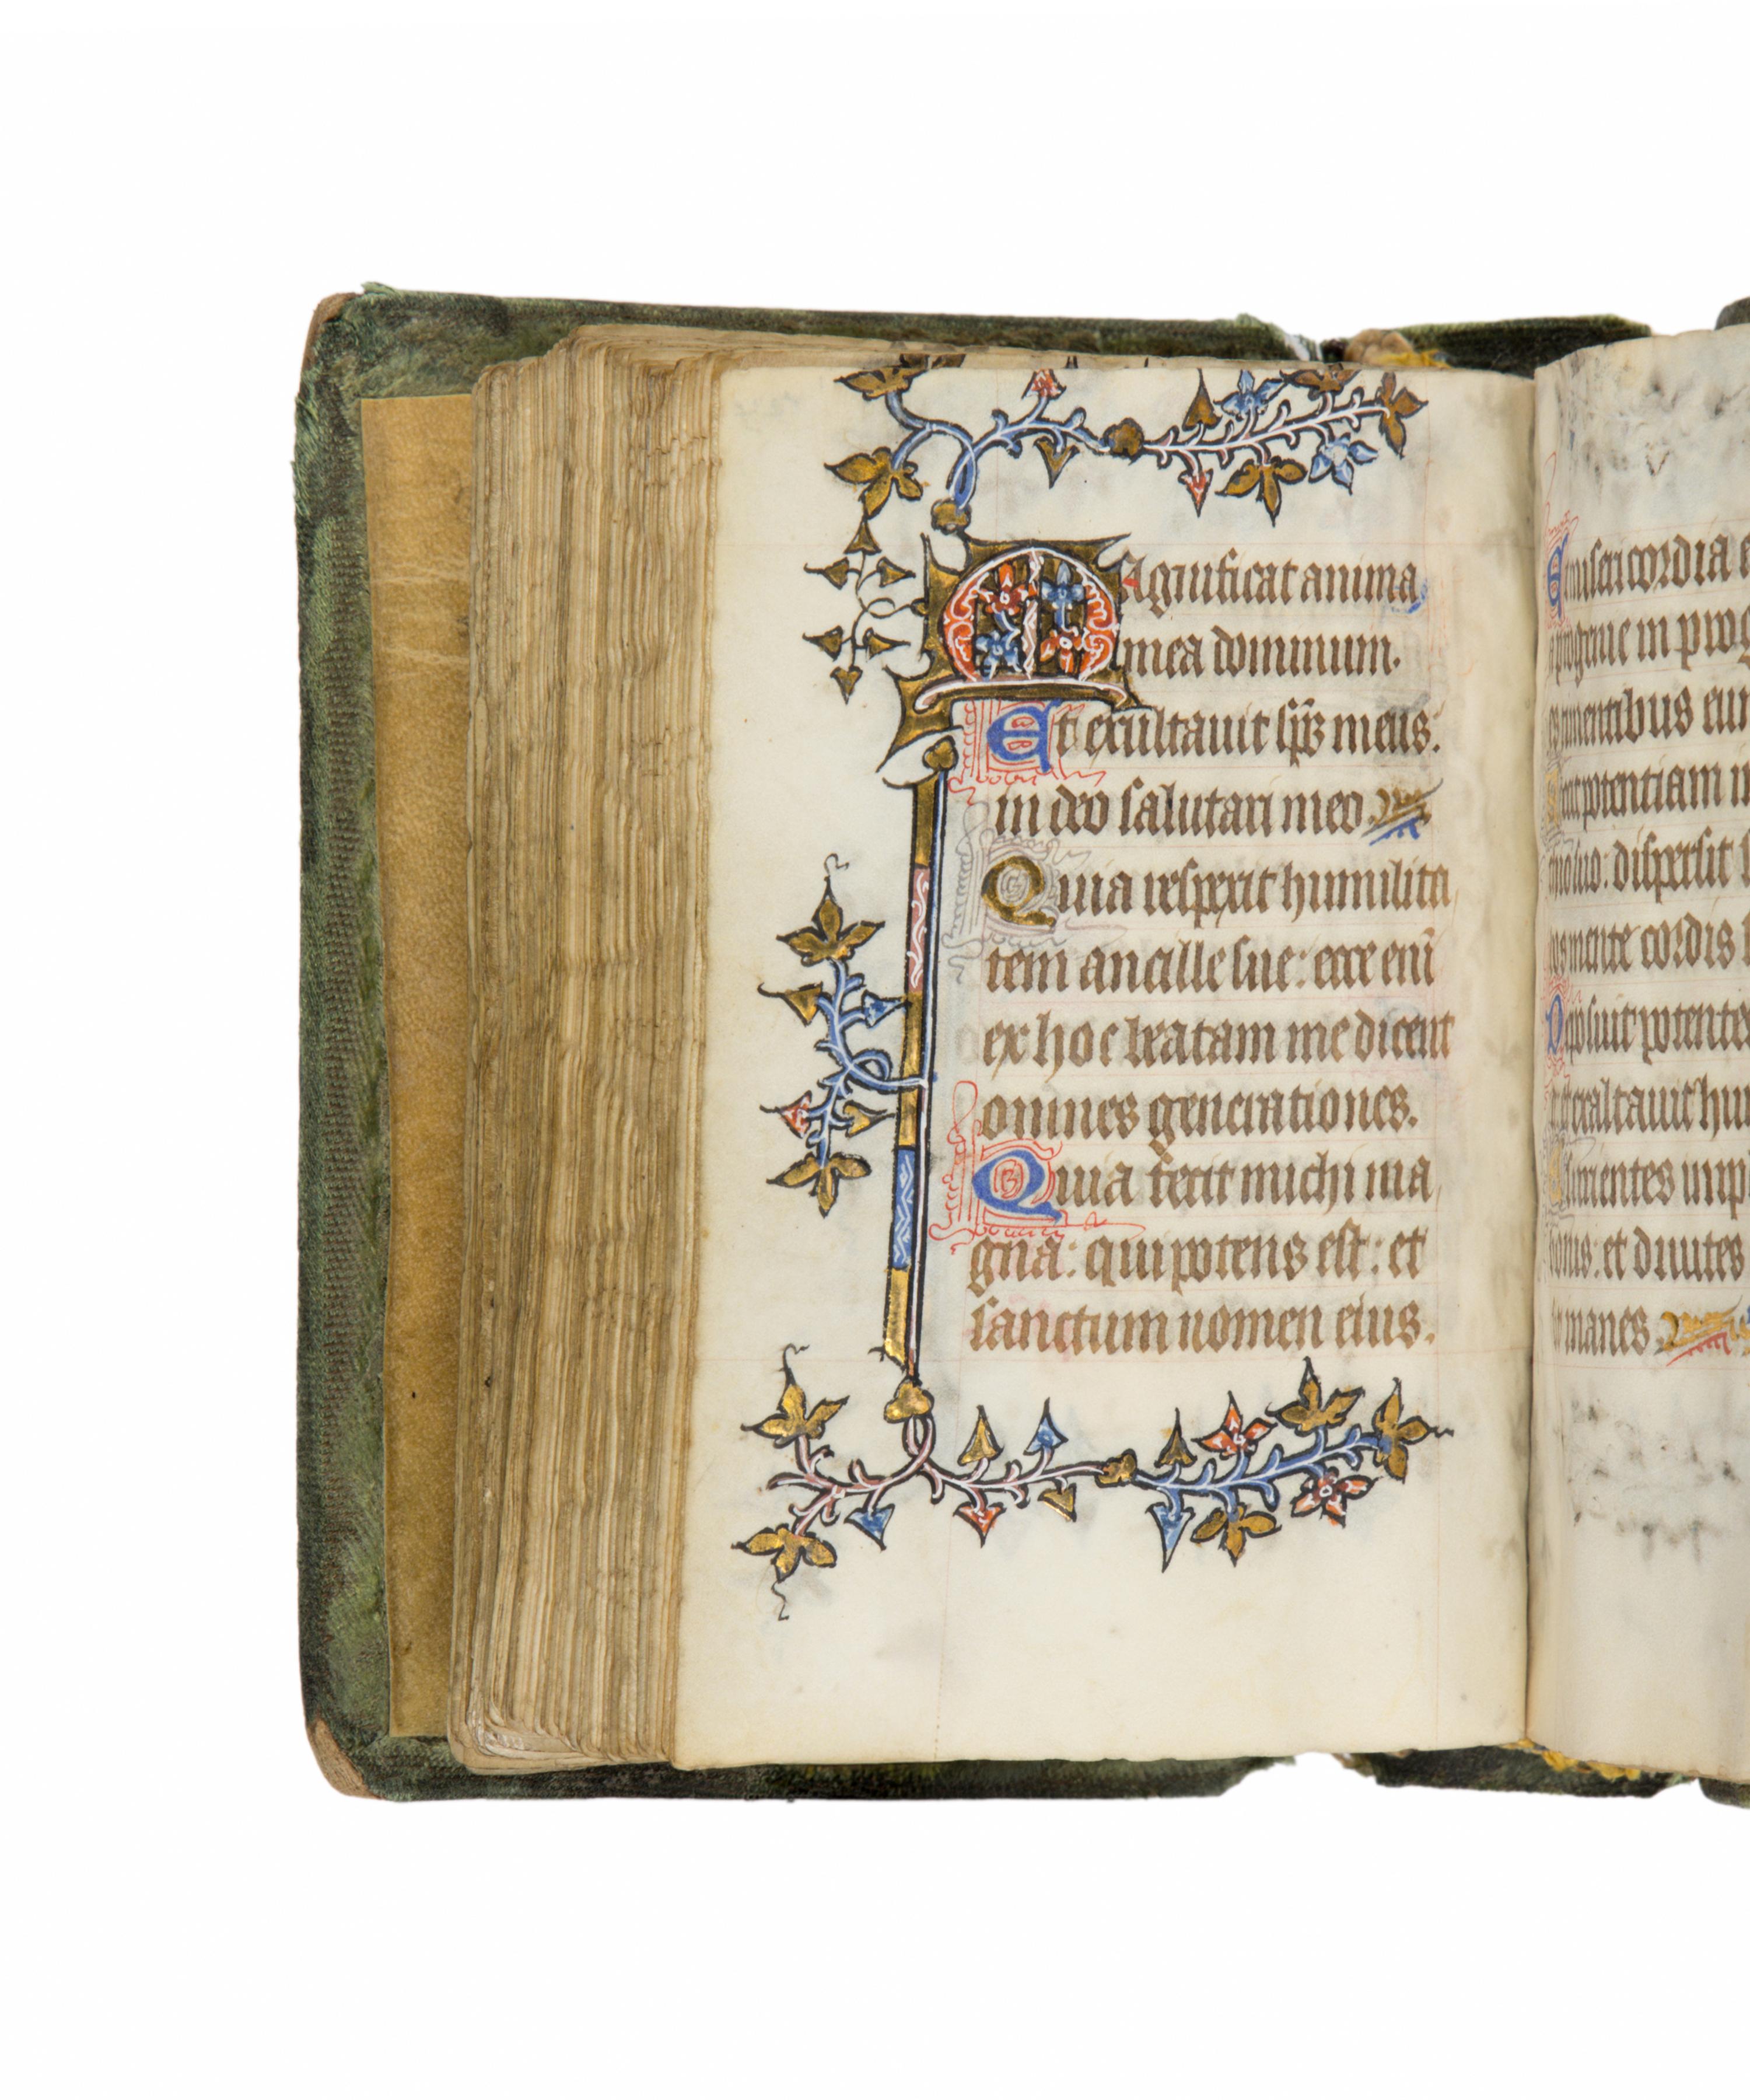 Magnificat anima
mea dominum.
Et exultauit sp̄s meus:
in deo salutari meo.
Quia respexit humilita
tem ancille sue: ecce eni̅
ex hoc beatam me dicent
omnes generationes.
Quia fecit michi ma
gna: qui potens est: et
sanctum nomen eius.
misericordia
progenie in
mentibus
potentiam
suo: dispersit
mente cordis
potente
exaltauit
Esurientes
bonis: et diuites
manes.